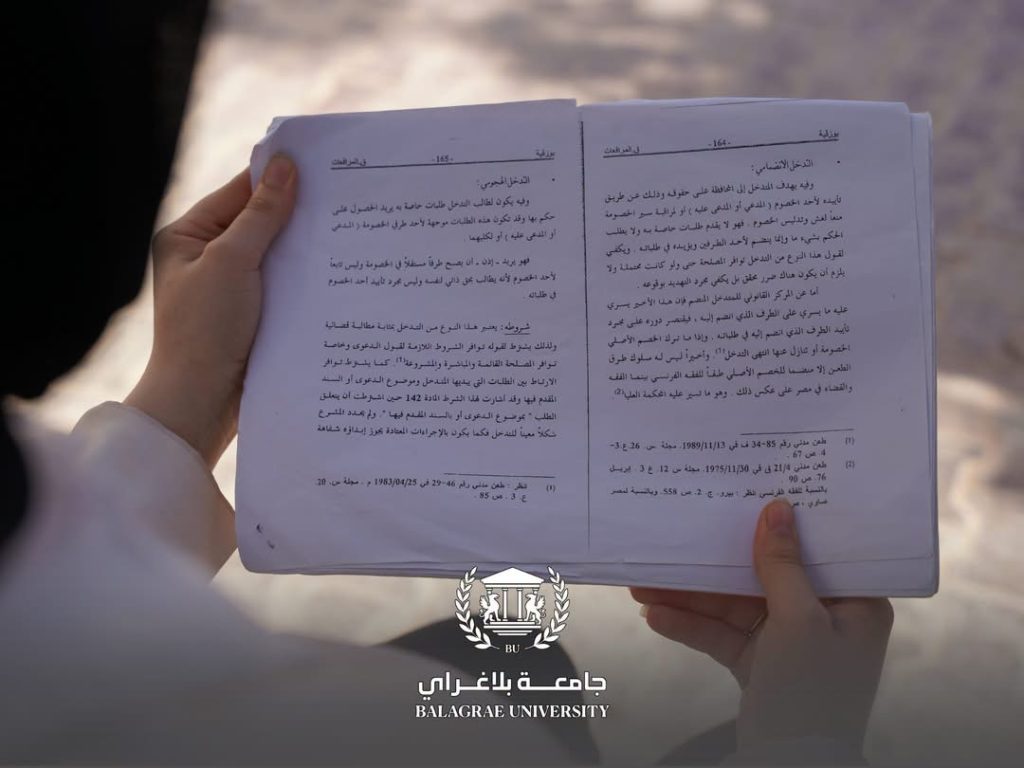 بوزقية -164- في المرافعات
• التدخل الانضمامي :
وفيه يهدف المتدخل إلى المحافظة على حقوقه وذلك عن طريق
تأييده لأحد الخصوم ( المدعي أو المدعى عليه ) أو لمراقبة سير الخصومة
منعاً لغش وتدليس الخصوم . فهو لا يقدم طلبات خاصة به ولا يطلب
الحكم بشيء ما وإنما ينضم لأحد الطرفين ويؤيده في طلباته . ويكفي
لقبول هذا النوع من التدخل توافر المصلحة حتى ولو كانت محتملة ولا
يلزم أن يكون هناك ضرر محقق بل يكفي مجرد التهديد بوقوعه .
أما عن المركز القانوني للمتدخل المنضم فإن هذا الأخير يسري
عليه ما يسري على الطرف الذي انضم إليه ، فيقتصر دوره على مجرد
تأييد الطرف الذي انضم إليه في طلباته . وإذا ما ترك الخصم الأصلي
الخصومة أو تنازل عنها انتهى التدخل(1) وأخيراً ليس له سلوك طرق
الطعن إلا منضما للخصم الأصلي طبقاً للفقه الفرنسي بينما الفقه
والقضاء في مصر على عكس ذلك . وهو ما تسير عليه المحكمة العليا(2)
(1) طعن مدني رقم 85-34 ق في 1989/11/13. مجلة س. 26.ع.3-
4. ص 67 .
(2) طعن مدني 21/4 ق في 1975/11/30. مجلة س 12. ع 3 . إبريل
76. ص 90 .
بالنسبة للفقه الفرنسي تنظر : بيرو، ج. 2. ص 558. وبالنسبة لمصر
صاوي ،
بوزقية -165- في المرافعات
• التدخل الهجومي :
وفيه يكون لطالب التدخل طلبات خاصة به يريد الحصول على
حكم بها وقد تكون هذه الطلبات موجهة لأحد طرفي الخصومة ( المدعي
أو المدعى عليه ) أو لكليهما .
فهو يريد ـ إذن ـ أن يصبح طرفاً مستقلاً في الخصومة وليس تابعاً
لأحد الخصوم لأنه يطالب بحق ذاتي لنفسه وليس مجرد تأييد أحد الخصوم
في طلباته .
شروطه: يعتبر هذا النوع من التدخل بمثابة مطالبة قضائية
ولذلك يشترط لقبوله توافر الشروط اللازمة لقبول الدعوى وخاصة
توافر المصلحة القائمة والمباشرة والمشروعة(1). كما يشترط توافر
الارتباط بين الطلبات التي يبديها المتدخل وموضوع الدعوى أو السند
المقدم فيها وقد أشارت لهذا الشرط المادة 142 حين اشترطت أن يتعلق
الطلب " بموضوع الدعوى أو بالسند المقدم فيها ". ولم يحدد المشرع
شكلاً معيناً للتدخل فكما يكون بالإجراءات المعتادة يجوز إبداؤه شفاهة
(1) تنظر : طعن مدني رقم 46-29 في 1983/04/25 م . مجلة س. 20.
ع. 3 . ص 85 .
BU
جامعة بلاغراي
BALAGRAE UNIVERSITY